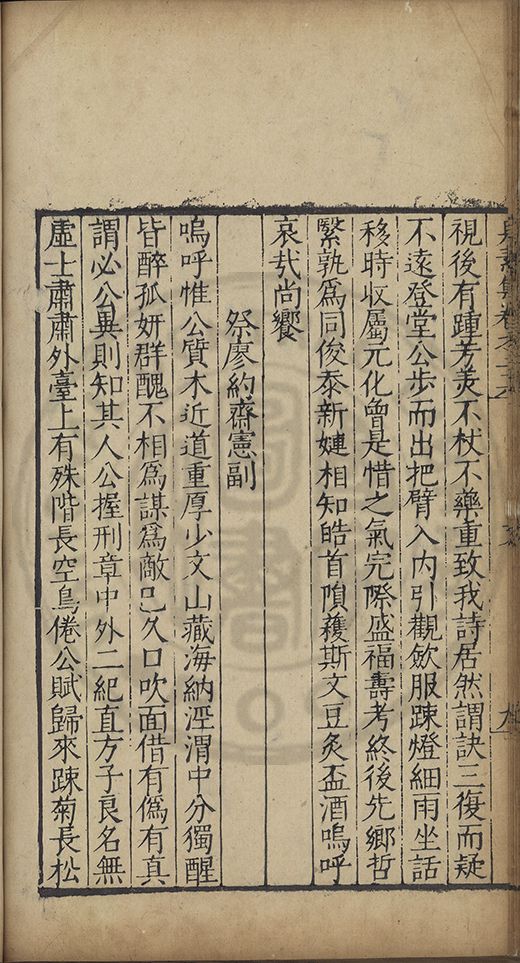 視後有踵芳羙不杖不藥重致我詩居然謂訣三復而疑
不遠登堂公歩而出把臂入内引觀斂服踈燈細雨坐話
移時収屬元化曾是惜之氣完際盛福壽考終後先鄉哲
緊孰爲同俊忝新婕相知皓首隕穫斯文豆炙盃酒嗚呼
哀㦲尚饗
祭廖約齋憲副
嗚呼惟公質木近道重厚少文山藏海納涇渭中分獨醒
皆醉孤妍群醜不相爲謀爲敵已久口吹面借有僞有真
謂必公異則知其人公握刑章中外二紀直方子良名無
虛士肅肅外臺上有殊階長空鳥倦公賦歸來踈菊長松